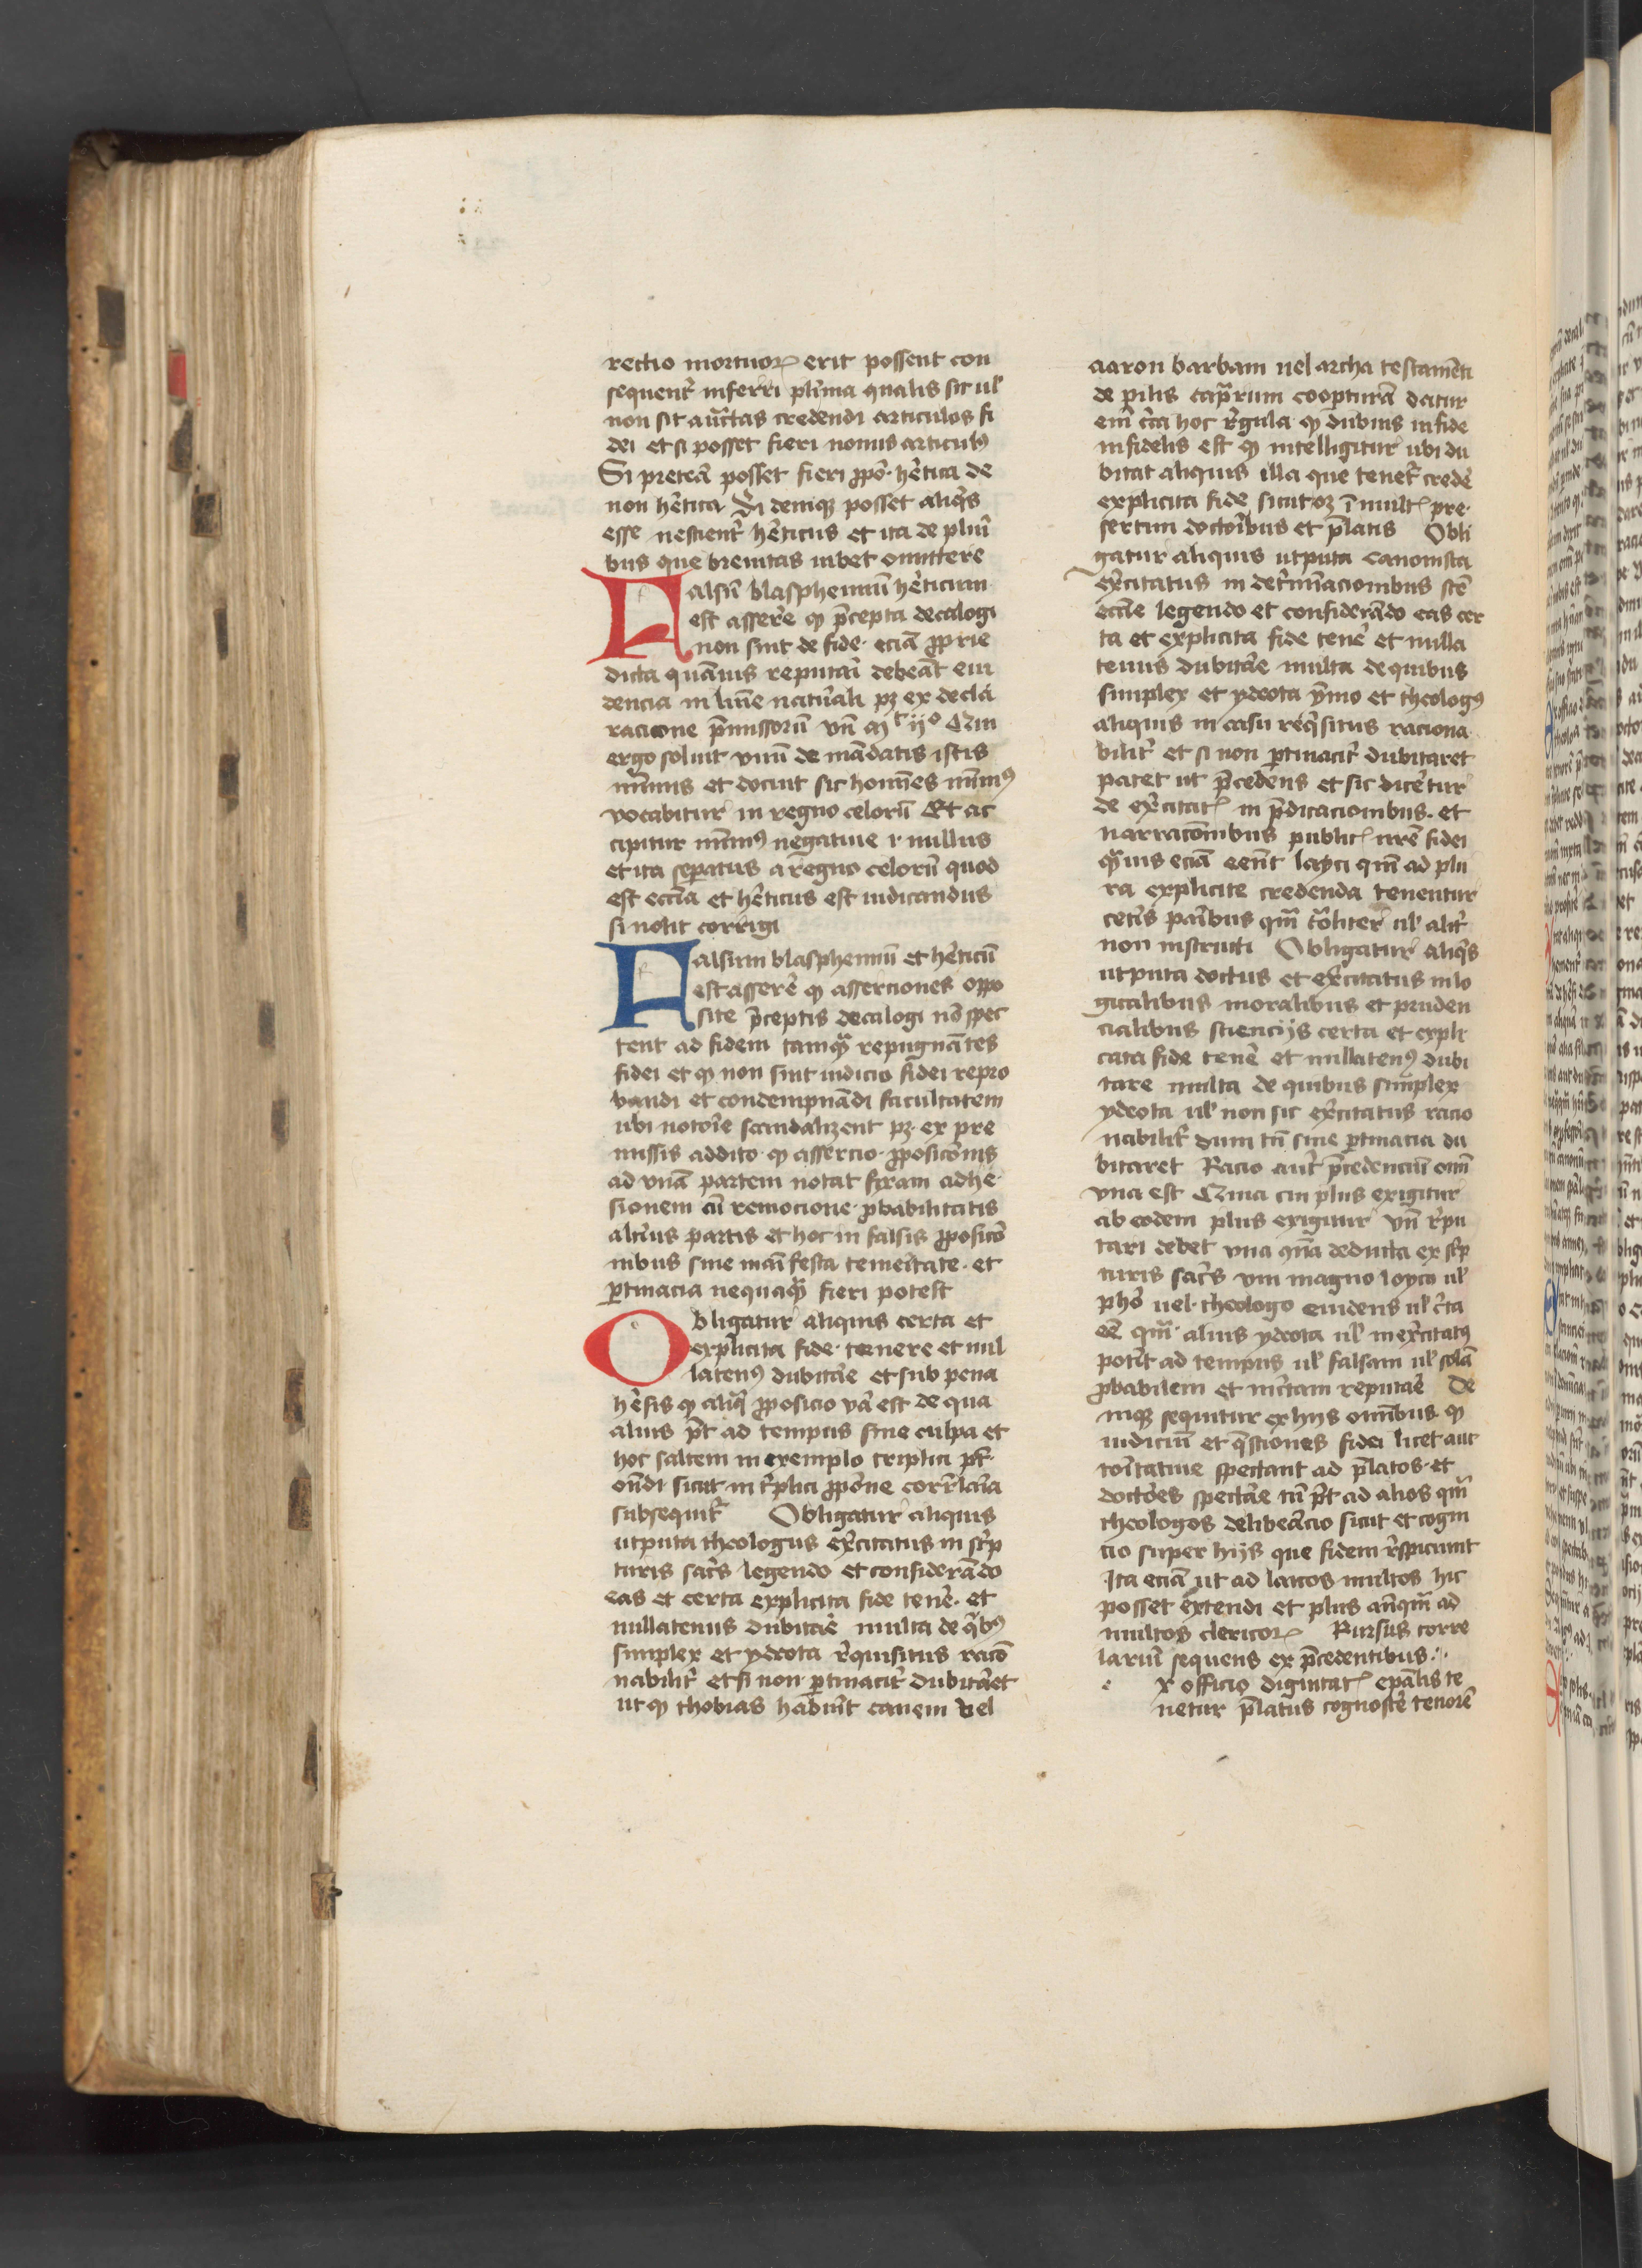 rectio mortuoꝝ erit possent con
sequent᷑ inferri pl̄ima qualis sit ul̓
non sit auct̄tas credendi articulos fi
dei et si posset fieri nouus articul9
Si pretea᷑ posset fieri ꝓpō hētica de
non hētica Si deniqꝫ posset aliqͥs
esse nescient᷑ hēticus et ita de pluri
bus que breuitas iubet omittere
Falsū blasphemiū hēticum
est assere᷑ ꝙ p̄cepta decalogi
non sint de fide eciā ꝓprie
dicta quāuis reputari debeāt eui
dencia in lūie naturali pꝫ ex decla
racione p̄missorū vn̄ Qui
ergo soluit vnū de mādatis istis
minimis et docuit sic homīes minim9
vocabitur in regno celorū Et ac
cipitur minim9 negatiue .i. nullus
et ita sepatus a regno celorū quod
est ecclīa et hēticus est iudicandus
si nolit corrigi
Falsum blasphemiū et hēticū
est assere᷑ ꝙ asserciones oppo
site p̄ceptis decalogi nō spec
tent ad fidem tamqᷓ repugnātes
fidei et ꝙ non sint iudicio fidei repro
bandi et condempnādi facultatem
ubi notorie scandalizent pꝫ ex pre
missis addito ꝙ assercio ꝓposicōnis
ad vnā partem notat fixam adhe
sionem cū remocione ꝓbabilitatis
alterius partis et hoc in falsis ꝓposicō
nibus sine manifesta temeritate et
ꝑtinacia nequaqᷓ fieri potest
Obligatur aliquis certa et
explicita fide tenere et nul
laten9 dubitare et sub pena
hēsis ꝙ aliqua ꝓposicio vera est de qua
alius pōt ad tempus sine culpa et
hoc saltem in exemplo triplici pōt
ondi sicut in triplici ꝓpōne correlaria
subsequit᷑ Obligatur aliquis
utputa theologus exc̄itatus in scrip
turis sacris legendo et considerādo
eas et certa explicita fide tene᷑ et
nullatenus dubitare multa de qͥb9
simplex et ydeota requisitus racō
nabilit᷑ et si non ꝑtinacit᷑ dubitaret
ut ꝙ thobias habuit canem vel
aaron barbam uel archa testamēti
de pilis caprarum coopturā datur
em̄ circa hoc regula ꝙ dubius in fide
infidelis est ꝙ intelligitur ubi du
bitat aliquis illa que tenet᷑ crede᷑
explicita fide sicut oꝫ ī mult᷑ pre
sertim doctoribus et p̄latis Obli
gatur aliquis utputa canonista
exc̄itatus in det᷑minacionibus scē
ecclīe legendo et considerādo eas cer
ta et explicita fide tene᷑ et nulla
tenus dubitare multa de quibus
simplex et ydeota ymo et theolog9
aliquis in casu reqͥsitus raciona
bilit᷑ et si non ꝑtinacit᷑ dubitaret
patet ut p̄cedens et sic dicetur
de exc̄itat᷑ in p̄dicacionibus et
narracōnibus public᷑ nrē fidei
qᷓuis eciā eent layci qm̄ ad plu
ra explicite credenda tenentur
ceteris paribus qm̄ ul̓ alit᷑
non instructi Obligatur aliqͥs
utputa doctus et exc̄itatus in lo
gicalibus moralibus et pruden
cialibus sciencijs certa et expli
cata fide tene᷑ et nullaten9 dubi
tare multa de quibus simplex
ydeota ul̓ non sic exc̄itatus racio
nabilit᷑ dum tn̄ sine ꝑtinacia du
bitaret Racio aut᷑ p̄cedenciū oīm
vna est Quia cui plus exigitur
ab eodem plus exigitur vn̄ repu
tari debet vna qn̄a deducta ex scrip
turis sacris vni magno loyco ul̓
pho uel theologo euidens ul̓ certa
eē qm̄ alius ydeota ul̓ inexc̄itat9
potit ad tempus ul̓ falsam ul̓ solā
ꝓbabilem et incertam reputare De
niqꝫ sequitur ex hijs omībus ꝙ
iudiciū et questiones fidei licet auc
toritatiue spectant ad p̄latos et
doctores spectare tn̄ pōt ad alios qm̄
theologos deliberacio sicut et cogni
cio super hijs que fidem respiciunt
Ita eciā ut ad laicos multos hic
posset extendi et plus anqm̄ ad
multos clericoꝝ Rursus corre
lariū sequens ex p̄cedentibus
e x officio dignitat᷑ ep̄alis te
netur p̄latus cognosce᷑ tenorē